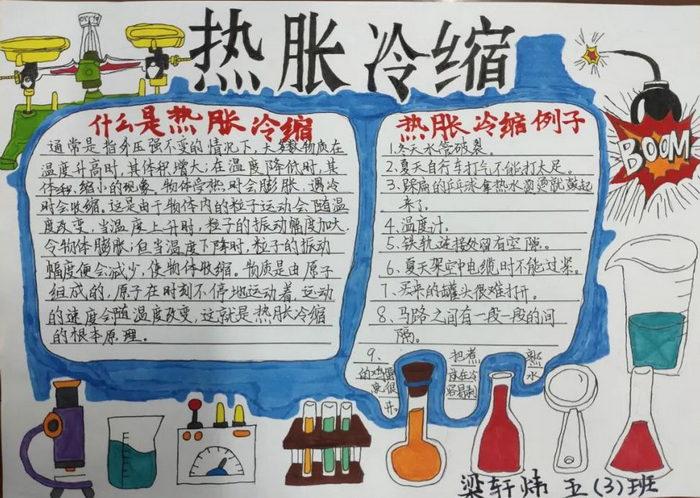 热胀冷缩
什么是热胀冷缩
通常是指外压强不变的情况下,大多数物质在
温度升高时,其体积增大;在温度降低时,其
体积缩小的现象,物体受热时会膨胀,遇冷
时会收缩。这是由于物体内的粒子运动会随温
度改变,当温度上升时,粒子的振动幅度加大,
令物体膨胀;但当温度下降时,粒子的振动
幅度便会减少,使物体收缩。物质是由原子
组成的,原子在时刻不停地运动着,运动
的速度会随温度改变,这就是热胀冷缩
的根本原理。
热胀冷缩例子
1.冬天水管破裂。
2.夏天自行车打气不能打太足。
3.踩扁的乒乓球用热水烫就鼓起
来了。
4.温度计。
5.铁轨连接处留有空隙。
6.夏天架空中电缆时不能过紧。
7.买来的罐头很难打开。
8、马路之间有一段一段的间
隔。
9、 把煮熟
的鸡蛋 放在冷水
BOOM
梁轩炜 五(3)班